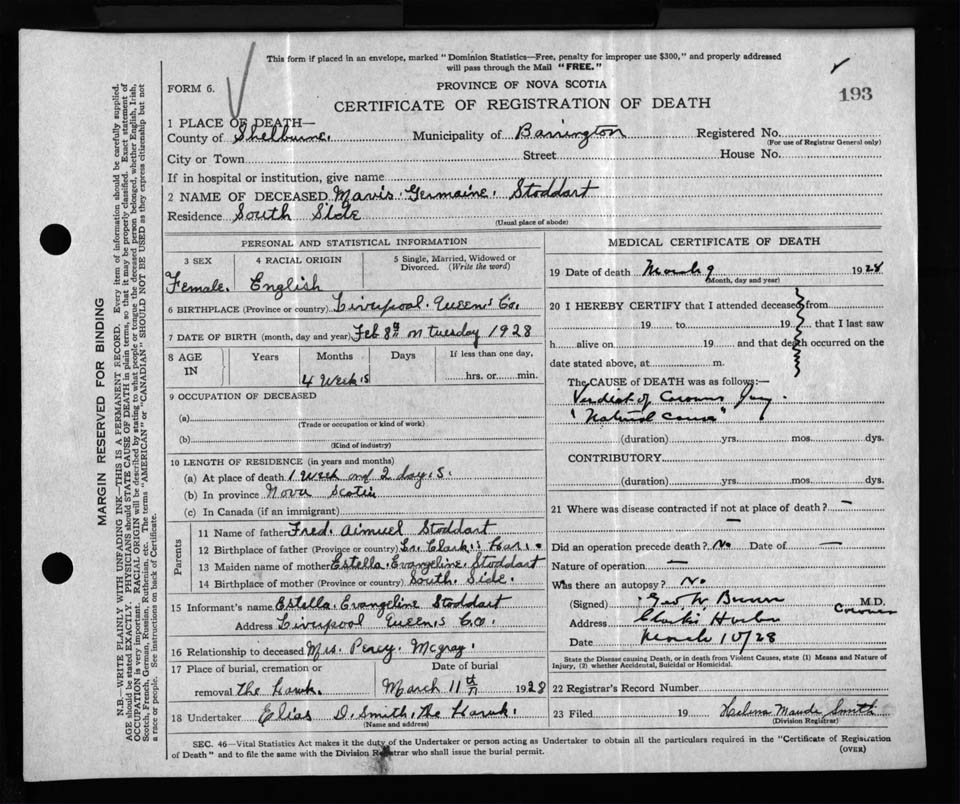 This form if placed in an envelope, marked "Dominion Statistics—Free, penalty for improper use $300," and properly addressed
will pass through the Mail "FREE."
FORM 6.
PROVINCE OF NOVA SCOTIA
193
CERTIFICATE OF REGISTRATION OF DEATH
1 PLACE OF DEATH—
County of Shelburne. Municipality of Barrington Registered No.
(For use of Registrar General only)
City or Town Street House No.
If in hospital or institution, give name
2 NAME OF DECEASED Mavis. Germaine. Stoddart
Residence South Side
(Usual place of abode)
PERSONAL AND STATISTICAL INFORMATION
3 SEX 4 RACIAL ORIGIN 5 Single, Married, Widowed or
Divorced. (Write the word)
Female. English
6 BIRTHPLACE (Province or country) Liverpool. Queens Co.
7 DATE OF BIRTH (month, day and year) Feb 8th on tuesday 1928
8 AGE IN Years Months Days If less than one day,
4 Weeks hrs. or min.
9 OCCUPATION OF DECEASED
(a)
(Trade or occupation or kind of work)
(b)
(Kind of industry)
10 LENGTH OF RESIDENCE (in years and months)
(a) At place of death 1 week and 2 days.
(b) In province Nova Scotia
(c) In Canada (if an immigrant)
Parents
11 Name of father Fred. Aimuel Stoddart
12 Birthplace of father (Province or country) Clark's Har.
13 Maiden name of mother Estella. Evangeline. Stoddart
14 Birthplace of mother (Province or country) South. Side.
15 Informant's name Estella. Evangeline Stoddart
Address Liverpool Queens Co.
16 Relationship to deceased Mrs. Percy. Mcgray.
17 Place of burial, cremation or Date of burial
removal The Hawk. March 11th 1928
18 Undertaker Elias D. Smith, The Hawk.
(Name and address)
MEDICAL CERTIFICATE OF DEATH
19 Date of death March 9 1928
(Month, day and year)
20 I HEREBY CERTIFY that I attended deceased from
19 to 19 that I last saw
h alive on 19 and that death occurred on the
date stated above, at m.
The CAUSE OF DEATH was as follows:—
Verdict of Coroners Jury.
"Natural Causes"
(duration) yrs. mos. dys.
CONTRIBUTORY
(duration) yrs. mos. dys.
21 Where was disease contracted if not at place of death? —
—
Did an operation precede death? No Date of —
Nature of operation —
Was there an autopsy? No
(Signed) Geo W. M.D.
Coroner
Address Clarks Harbor
Date March 10/28
State the Disease causing Death, or in death from Violent Causes, state (1) Means and Nature of
Injury, (2) whether Accidental, Suicidal or Homicidal.
22 Registrar's Record Number
23 Filed 19 Helena Maude Smith
(Division Registrar)
SEC. 46—Vital Statistics Act makes it the duty of the Undertaker or person acting as Undertaker to obtain all the particulars required in the "Certificate of Registration
of Death" and to file the same with the Division Registrar who shall issue the burial permit.
(OVER)
MARGIN RESERVED FOR BINDING
N.B.—WRITE PLAINLY WITH UNFADING INK—THIS IS A PERMANENT RECORD. Every item of information should be carefully supplied.
AGE should be stated EXACTLY. PHYSICIANS should STATE CAUSE OF DEATH in plain terms, so that it may be properly classified. Exact statement of
OCCUPATION is very important. RACIAL ORIGIN will be described by stating to what people or tongue the deceased person belonged, whether English, Irish,
Scotch, French, German, Russian, Ruthenian, etc. The terms "AMERICAN" or "CANADIAN" SHOULD NOT BE USED as they express citizenship but not
a race or people. See instructions on back of Certificate.